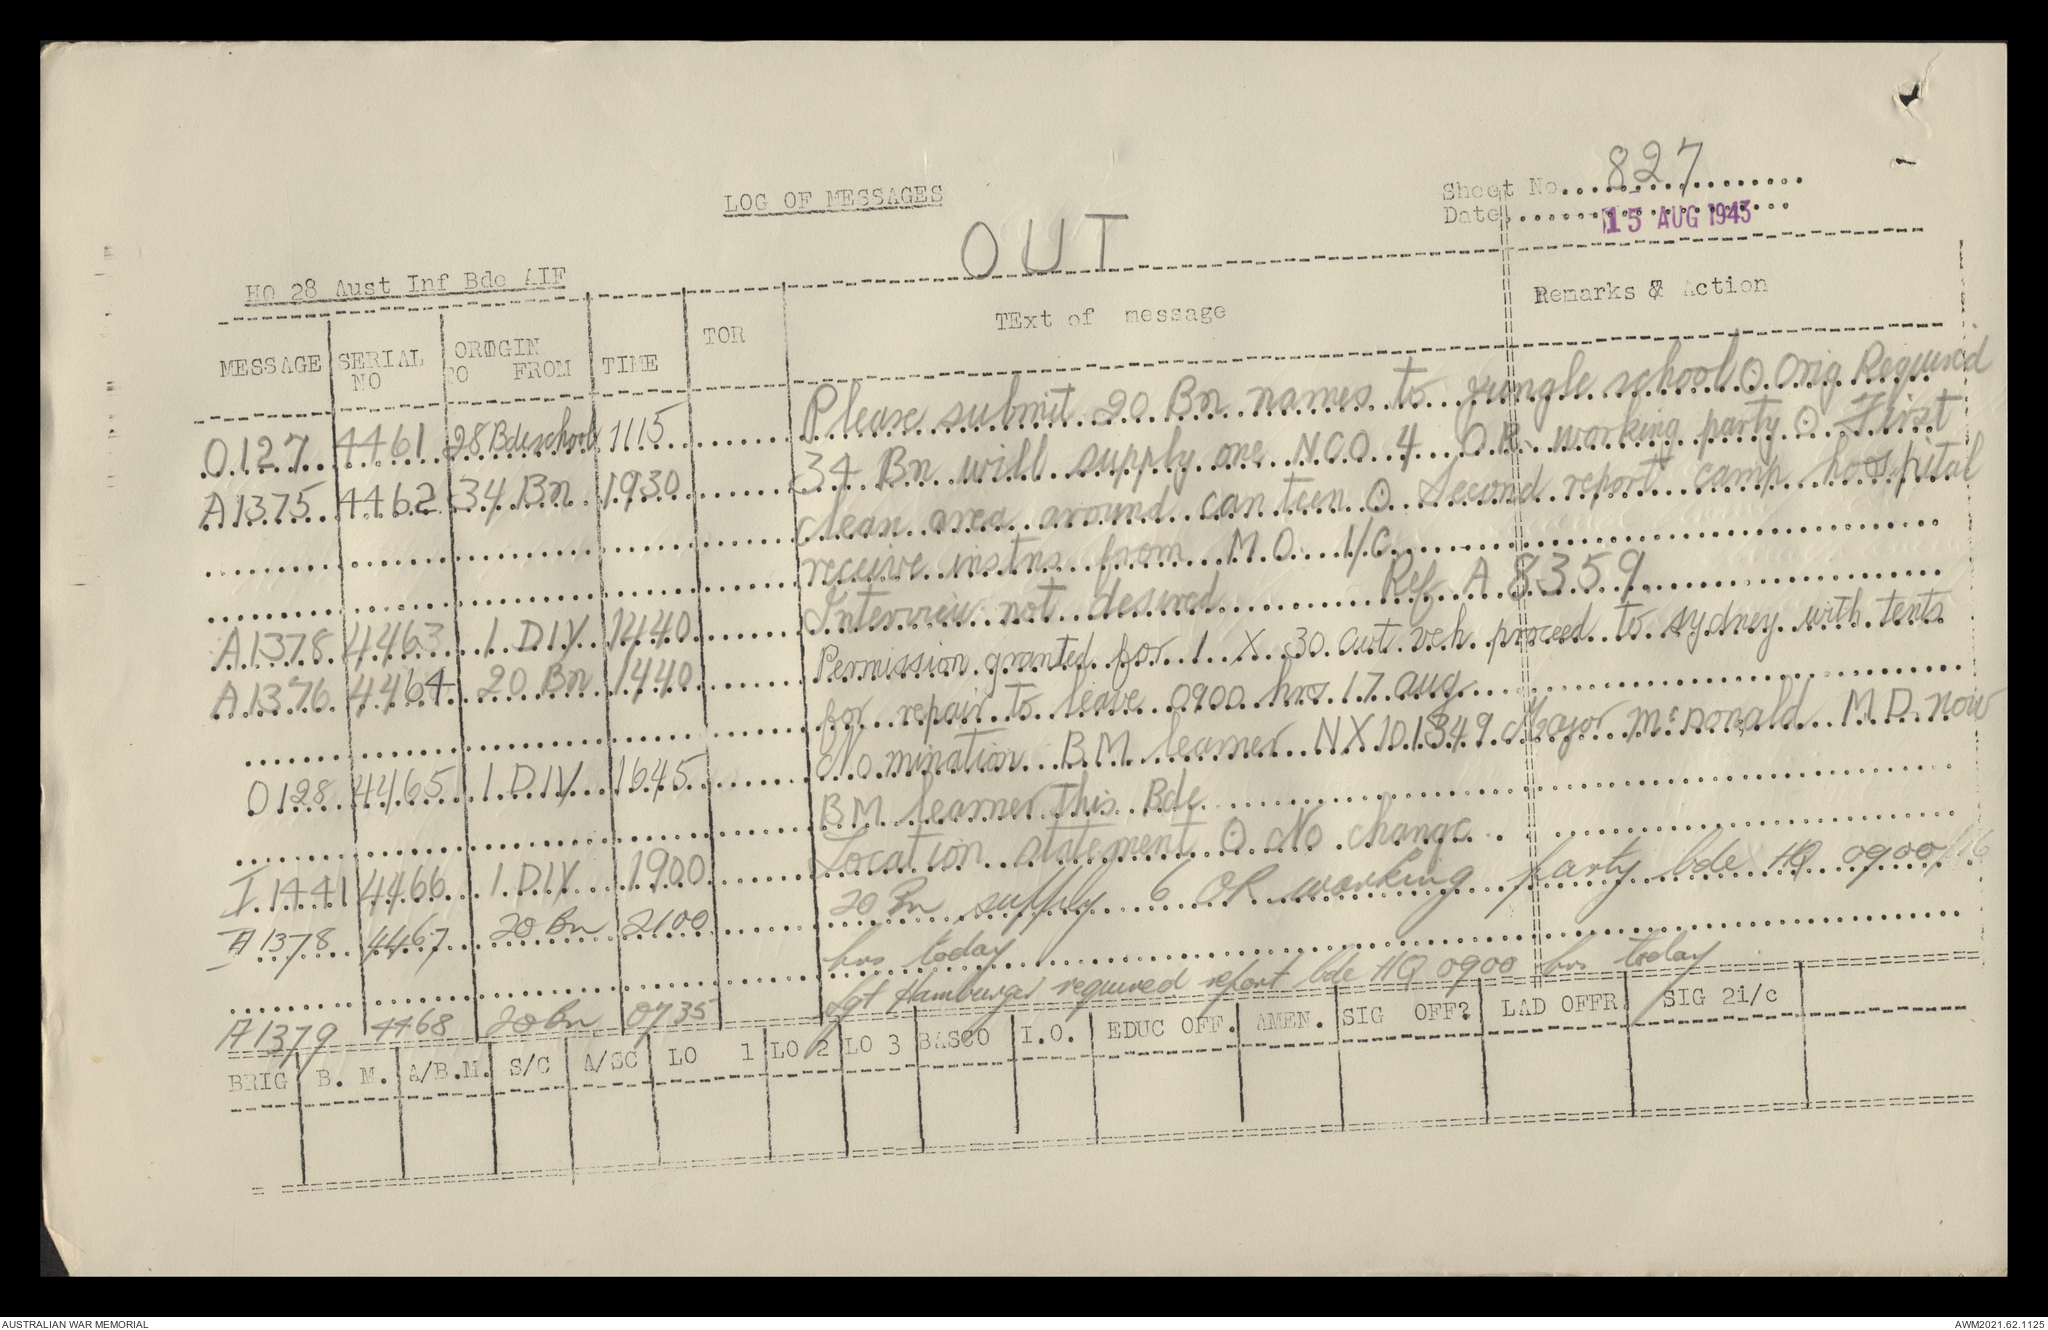 Sheet No. 827
LOG OF MESSAGES
Date 15 AUG 1943
OUT
HQ 28 Aust Inf Bde AIF
MESSAGE SERIAL NO ORIGIN TO FROM TIME TOR TExt of message Remarks & Action
O127 4461 28 Bde school 1115 Please submit 20 Bn names to jungle school ⊙ Orig Required
A1375 4462 34 Bn 1930 34 Bn will supply one NCO 4 OR working party ⊙ First
clean area around canteen ⊙ Second report camp hospital
receive instns from M.O. I/C
A1378 4463 1 DIV 1440 Interview not desired Ref A 8359
A1376 4464 20 Bn 1440 Permission granted for 1 X 30 cwt veh proceed to sydney with tents
for repair to leave 0900 hrs 17 aug
O128 4465 1 DIV 1645 Nomination BM learner NX101349 Major McDonald M D now
BM learner this Bde
I1441 4466 1 DIV 1900 Location statement ⊙ No change
A1378 4467 20 Bn 2100 20 Bn supply 6 OR working party bde HQ 0900/16
hrs today
A1379 4468 20 Bn 0735 Sgt Hamburger required report bde HQ 0900 hrs today
BRIG B. M. A/B.M. S/C A/SC LO 1 LO 2 LO 3 BASCO I.O. EDUC OFF. AMEN. SIG OFF? LAD OFFR SIG 2i/c
AUSTRALIAN WAR MEMORIAL AWM2021.62.1125